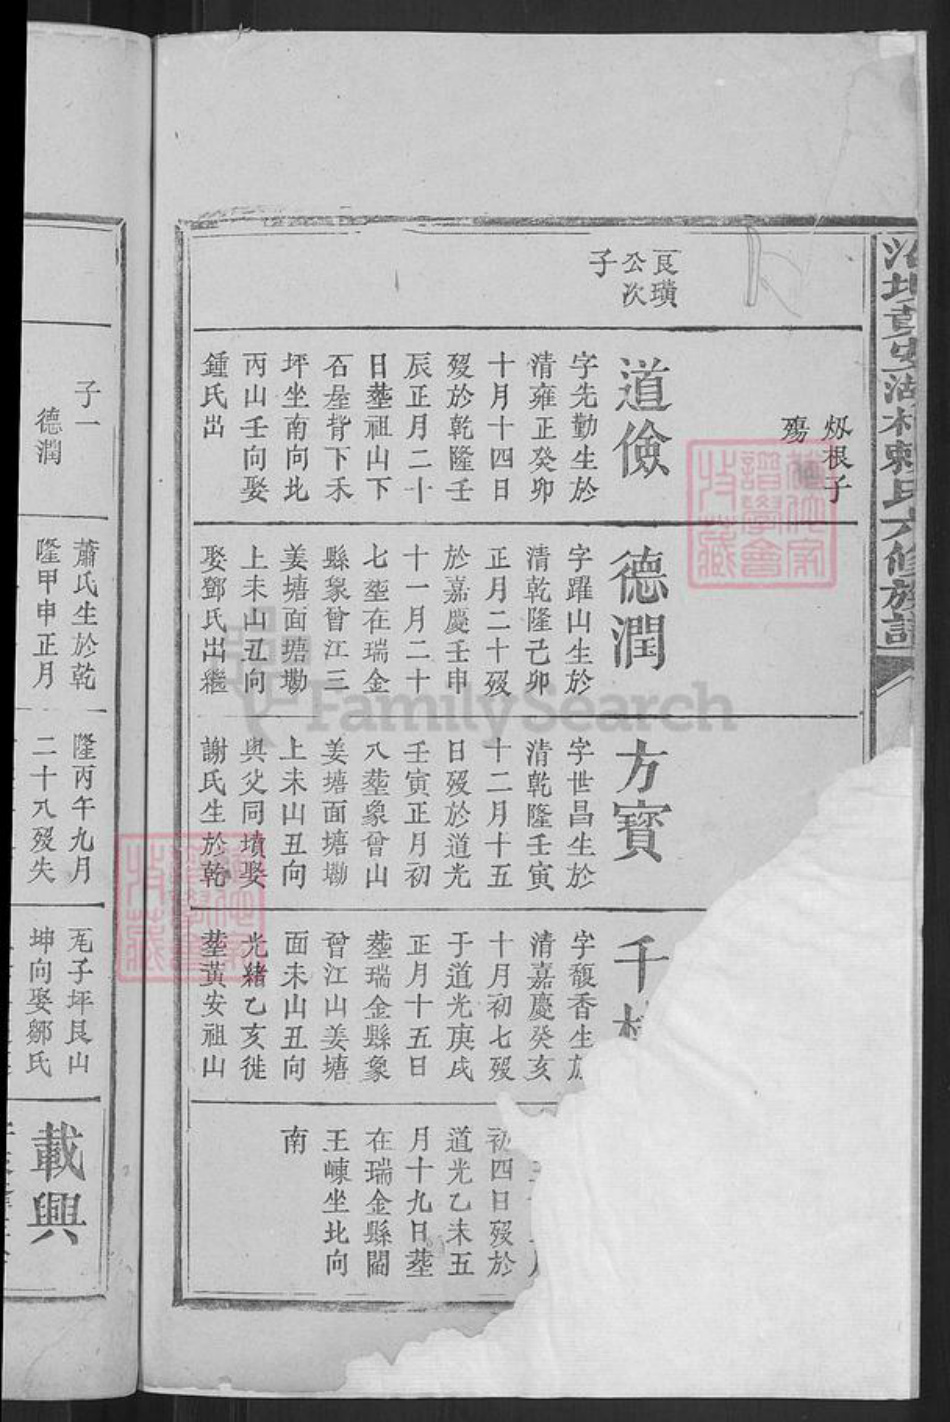 艮璜
公次
子
殤
道儉
字先勤生於
清雍正癸卯
十月十四日
歿於乾隆壬
辰正月二十
日塟祖山下
石壁背下禾
坪坐南向北
丙山壬向娶
鍾氏出
德潤
字躍山生於
清乾隆己卯
正月二十歿
於嘉慶壬申
十一月二十
七塟在瑞金
縣象曾江三
姜塘面塘塮
上未山丑向
娶鄧氏出繼
方寶
字世昌生於
清乾隆壬寅
十二月十五
日歿於道光
壬寅正月初
八塟象曾山
姜塘面塘塮
上未山丑向
與父同墳娶
謝氏生於乾
千
字馥香生
清嘉慶癸亥
十月初七歿
于道光庚戌
正月十五日
塟瑞金縣象
曾江山姜塘
面未山丑向
光緒乙亥徙
塟黃安祖山
初四日歿於
道光乙未五
月十九日塟
在瑞金縣閣
王崠坐北向
南
子一
德潤
蕭氏生於乾
隆甲申正月
隆丙午九月
二十八歿失
坤向娶鄒氏
載興
FamilySearch